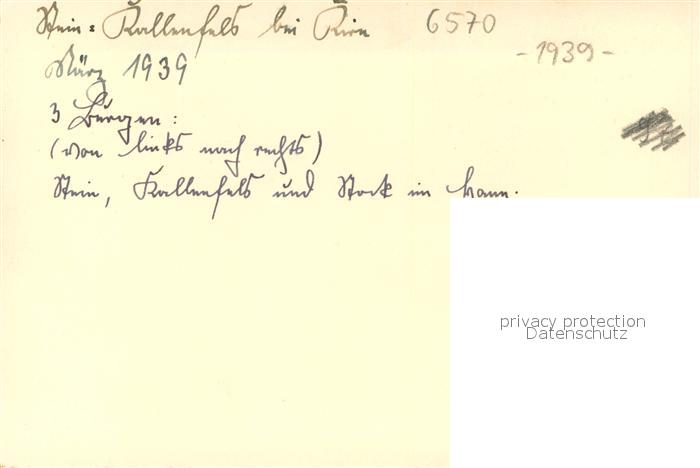 Stein-Kallenfels bei Kirn 6570
-1939-
März 1939
3 Burgen:
(von links nach rechts)
Stein, Kallenfels und Stock im Hann.
privacy protection
Datenschutz